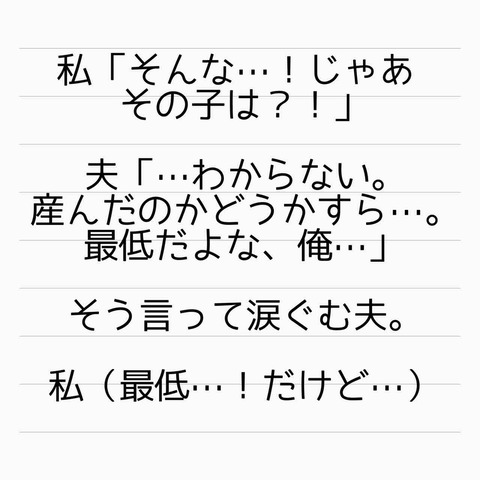 私「そんな…！じゃあ
その子は？！」
夫「…わからない。
産んだのかどうかすら…。
最低だよな、俺…」
そう言って涙ぐむ夫。
私（最低…！だけど…）